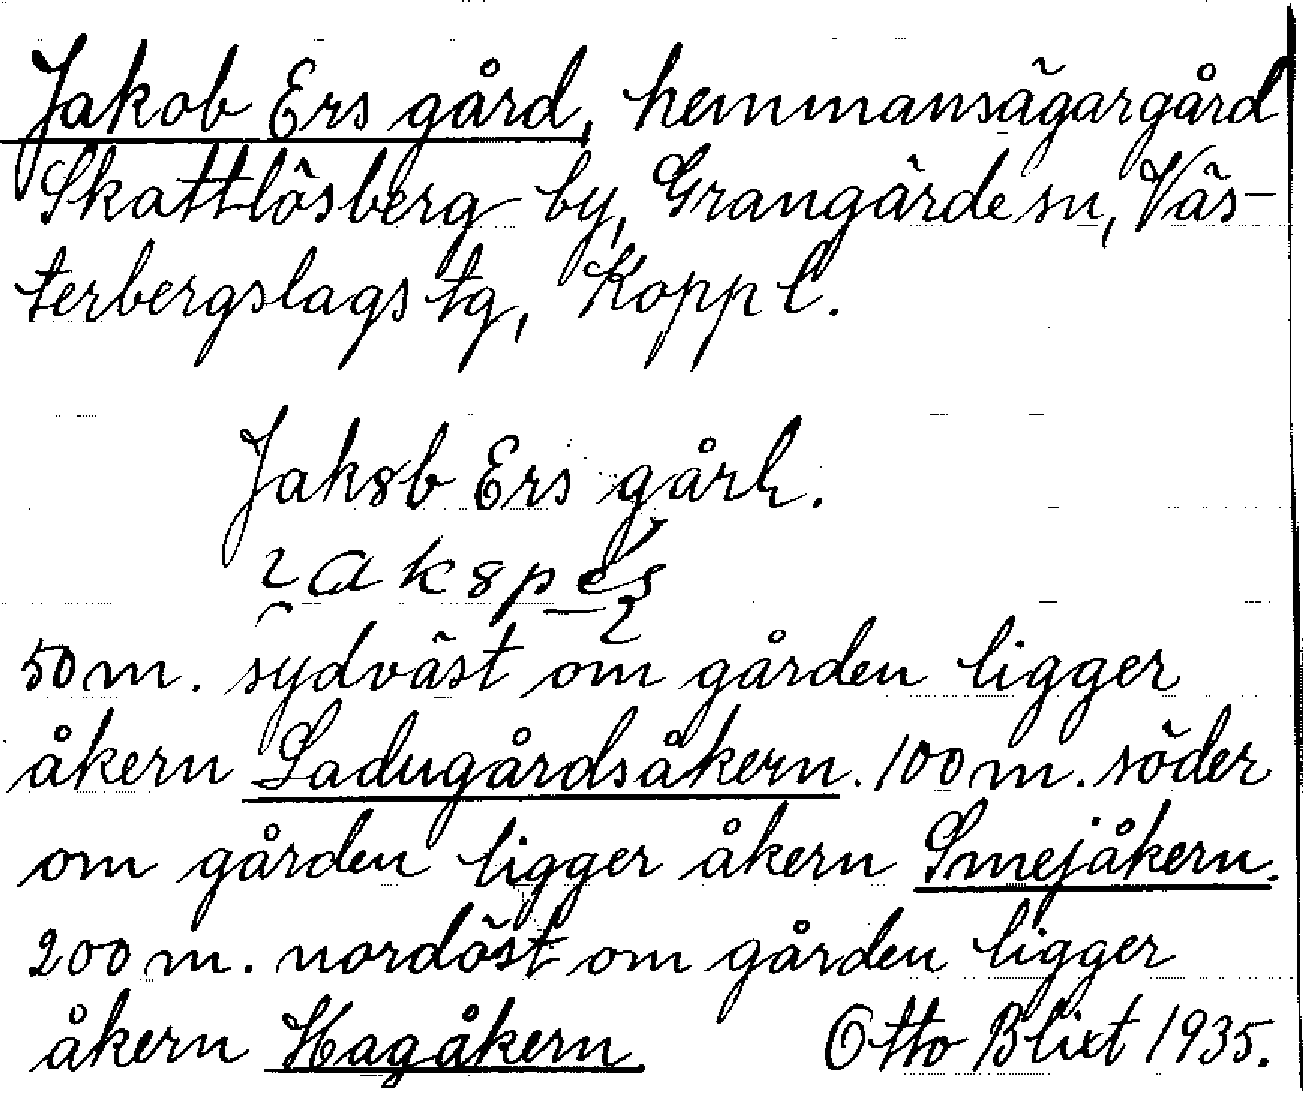 Jakob Ers gård, hemmansägargård
Skattlösberg by, Grangärde sn, Väs-
terbergslags tg, Kopp l.
Jak8b Ers gård.
50 m. sydväst om gården ligger
åkern Ladugårdsåkern. 100 m. söder
om gården ligger åkern Smejåkern.
200 m. nordöst om gården ligger
åkern Hagåkern. Otto Blixt 1935.